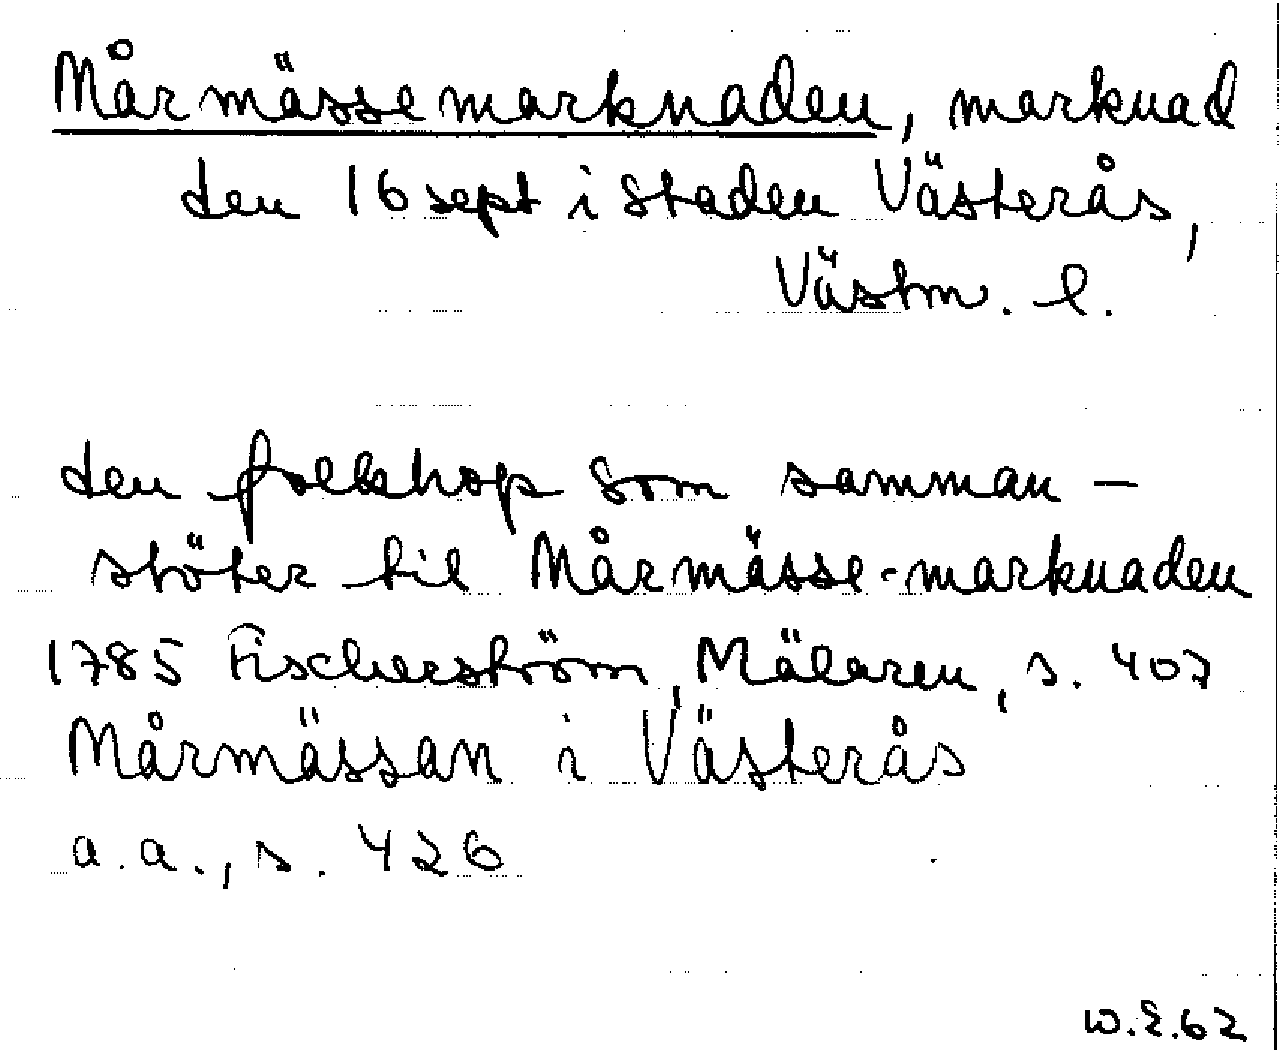 Mårmässemarknaden, marknad
den 16 sept i staden Västerås,
Västm. l.
den folkhop som samman-
stöter til Mårmässe-marknaden
1785 Fischerström, Mälaren, s. 407
Mårmässan i Västerås
a.a., s. 426
W.E.62